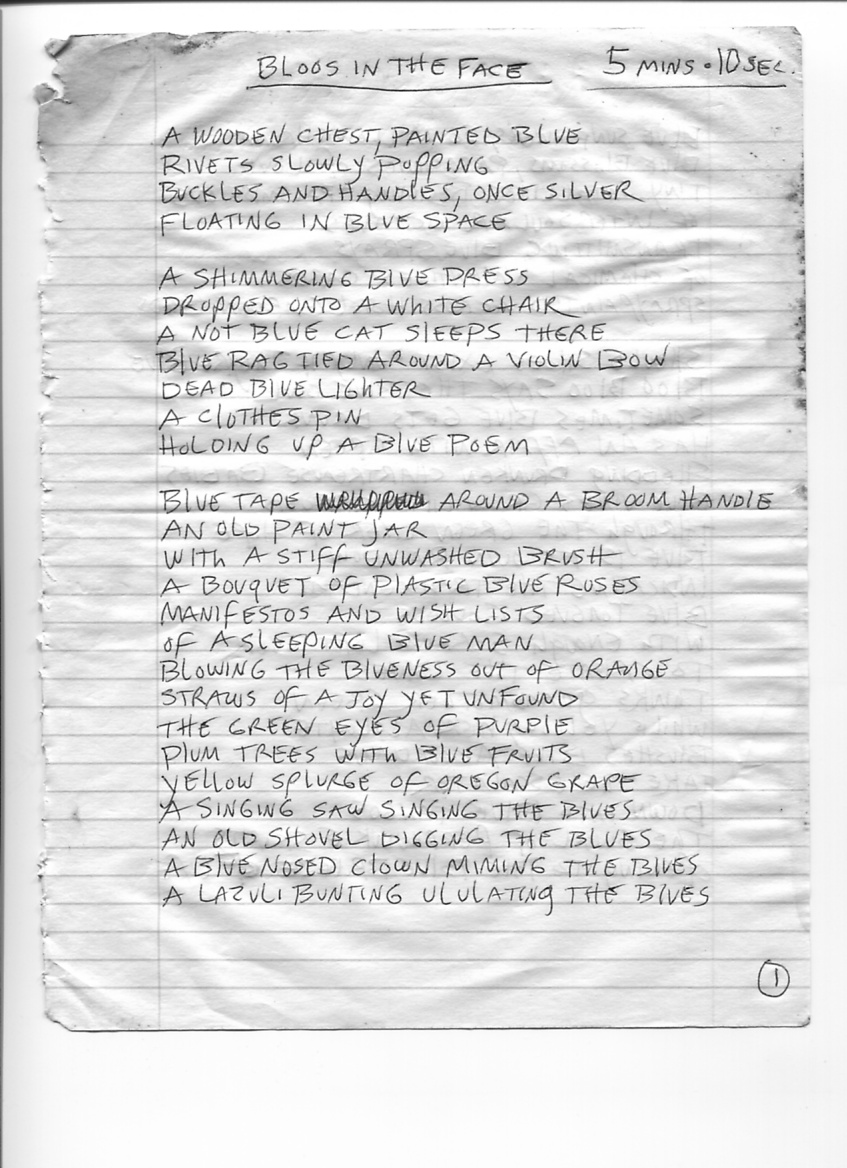 BLOOS IN THE FACE 5 MINS. 10 SEC.
A WOODEN CHEST, PAINTED BLUE
RIVETS SLOWLY POPPING
BUCKLES AND HANDLES, ONCE SILVER
FLOATING IN BLUE SPACE
A SHIMMERING BLUE DRESS
DROPPED ONTO A WHITE CHAIR
A NOT BLUE CAT SLEEPS THERE
BLUE RAG TIED AROUND A VIOLIN BOW
DEAD BLUE LIGHTER
A CLOTHES PIN
HOLDING UP A BLUE POEM
BLUE TAPE AROUND A BROOM HANDLE
AN OLD PAINT JAR
WITH A STIFF UNWASHED BRUSH
A BOUQUET OF PLASTIC BLUE ROSES
MANIFESTOS AND WISH LISTS
OF A SLEEPING BLUE MAN
BLOWING THE BLUENESS OUT OF ORANGE
STRAWS OF A JOY YET UNFOUND
THE GREEN EYES OF PURPLE
PLUM TREES WITH BLUE FRUITS
YELLOW SPLURGE OF OREGON GRAPE
A SINGING SAW SINGING THE BLUES
AN OLD SHOVEL DIGGING THE BLUES
A BLUE NOSED CLOWN MIMING THE BLUES
A LAZULI BUNTING ULULATING THE BLUES
1